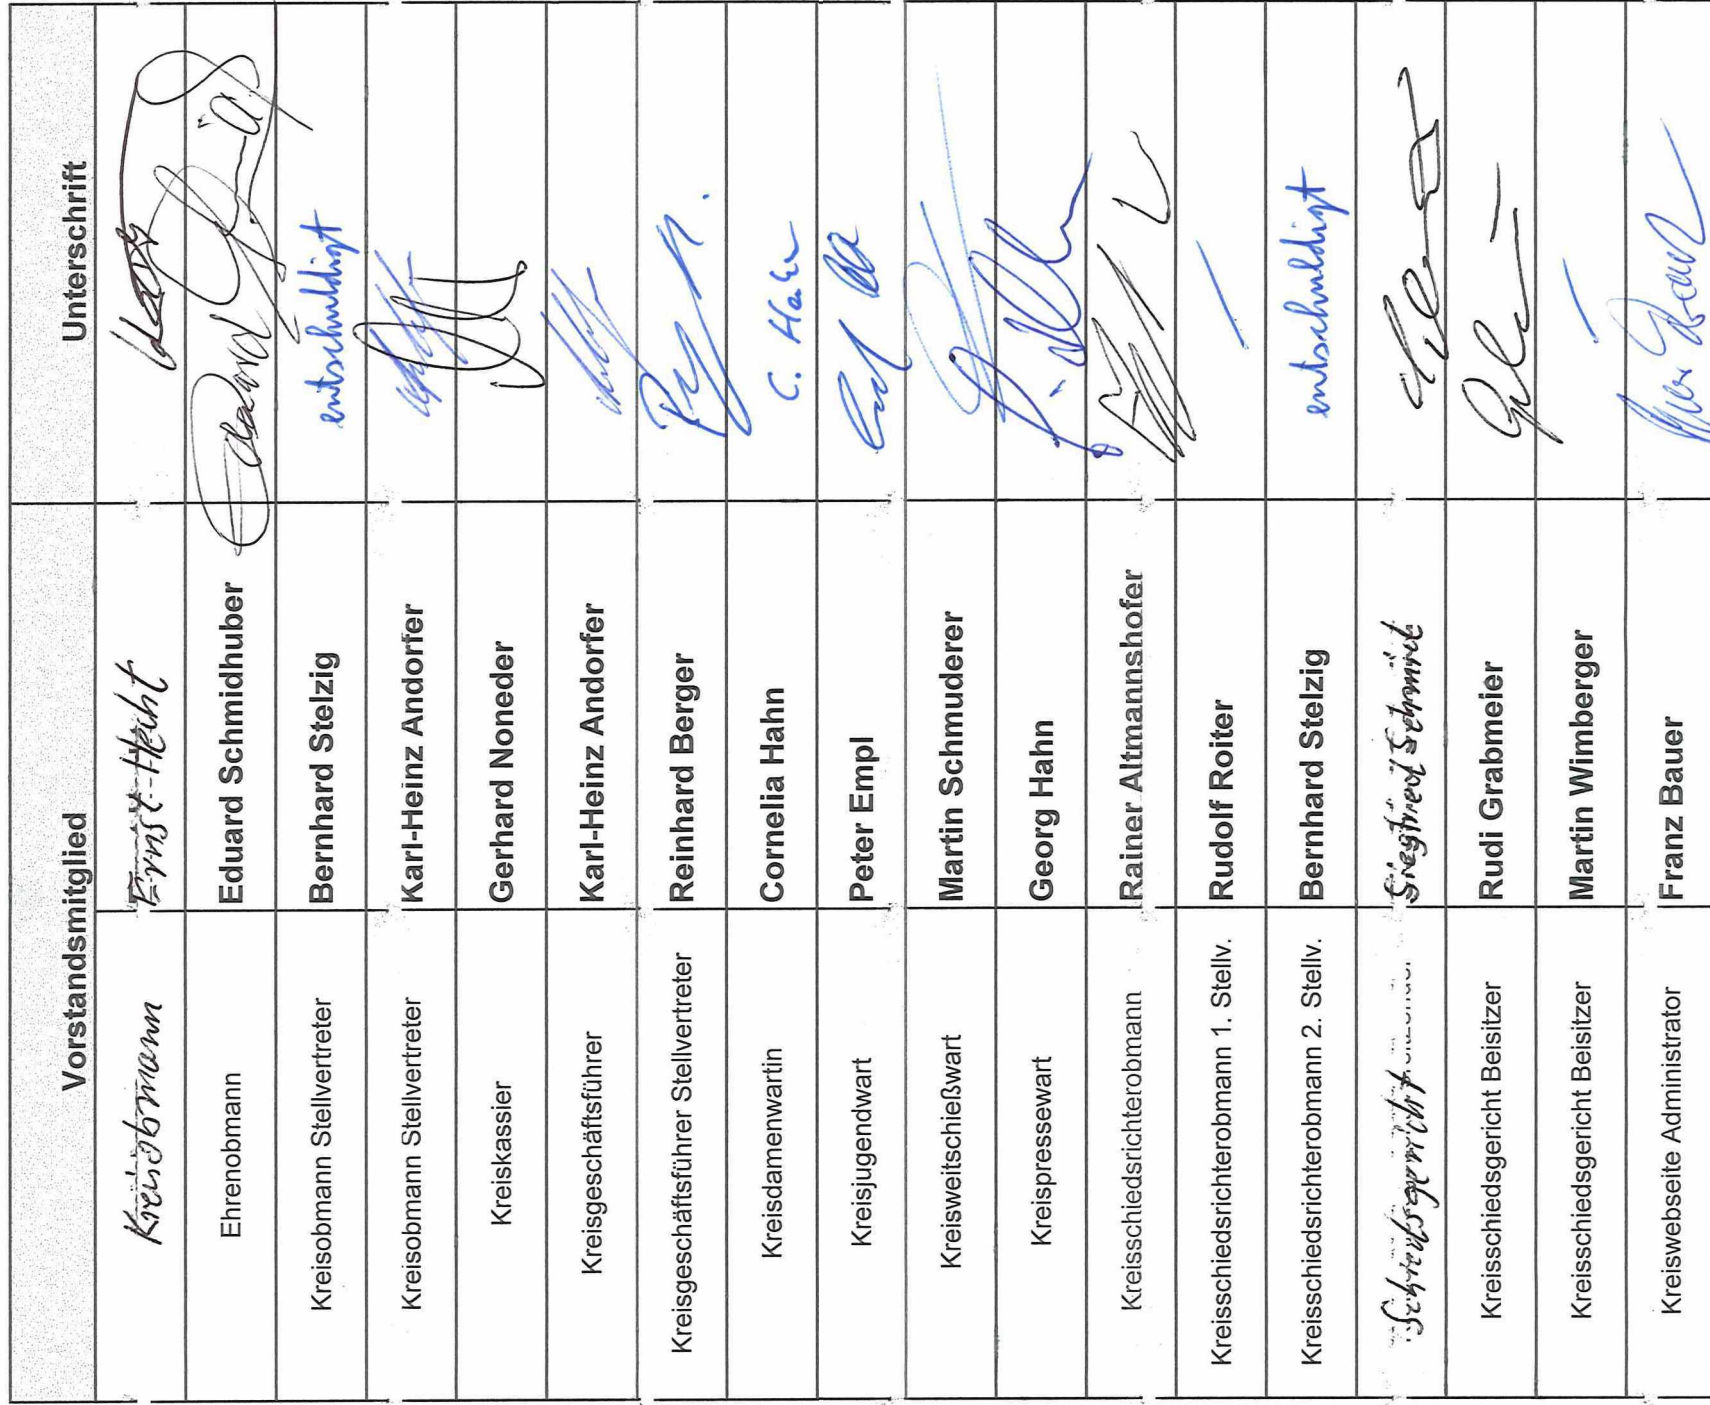 Vorstandsmitglied Unterschrift
Kreisobmann Ernst Hecht
Ehrenobmann Eduard Schmidhuber
Kreisobmann Stellvertreter Bernhard Stelzig entschuldigt
Kreisobmann Stellvertreter Karl-Heinz Andorfer
Kreiskassier Gerhard Noneder
Kreisgeschäftsführer Karl-Heinz Andorfer
Kreisgeschäftsführer Stellvertreter Reinhard Berger
Kreisdamenwartin Cornelia Hahn C. Hahn
Kreisjugendwart Peter Empl
Kreisweitschießwart Martin Schmuderer
Kreispressewart Georg Hahn
Kreisschiedsrichterobmann Rainer Altmannshofer
Kreisschiedsrichterobmann 1. Stellv. Rudolf Roiter –
Kreisschiedsrichterobmann 2. Stellv. Bernhard Stelzig entschuldigt
Schiedsgericht Siegfried Schmid
Kreisschiedsgericht Beisitzer Rudi Grabmeier
Kreisschiedsgericht Beisitzer Martin Wimberger –
Kreiswebseite Administrator Franz Bauer